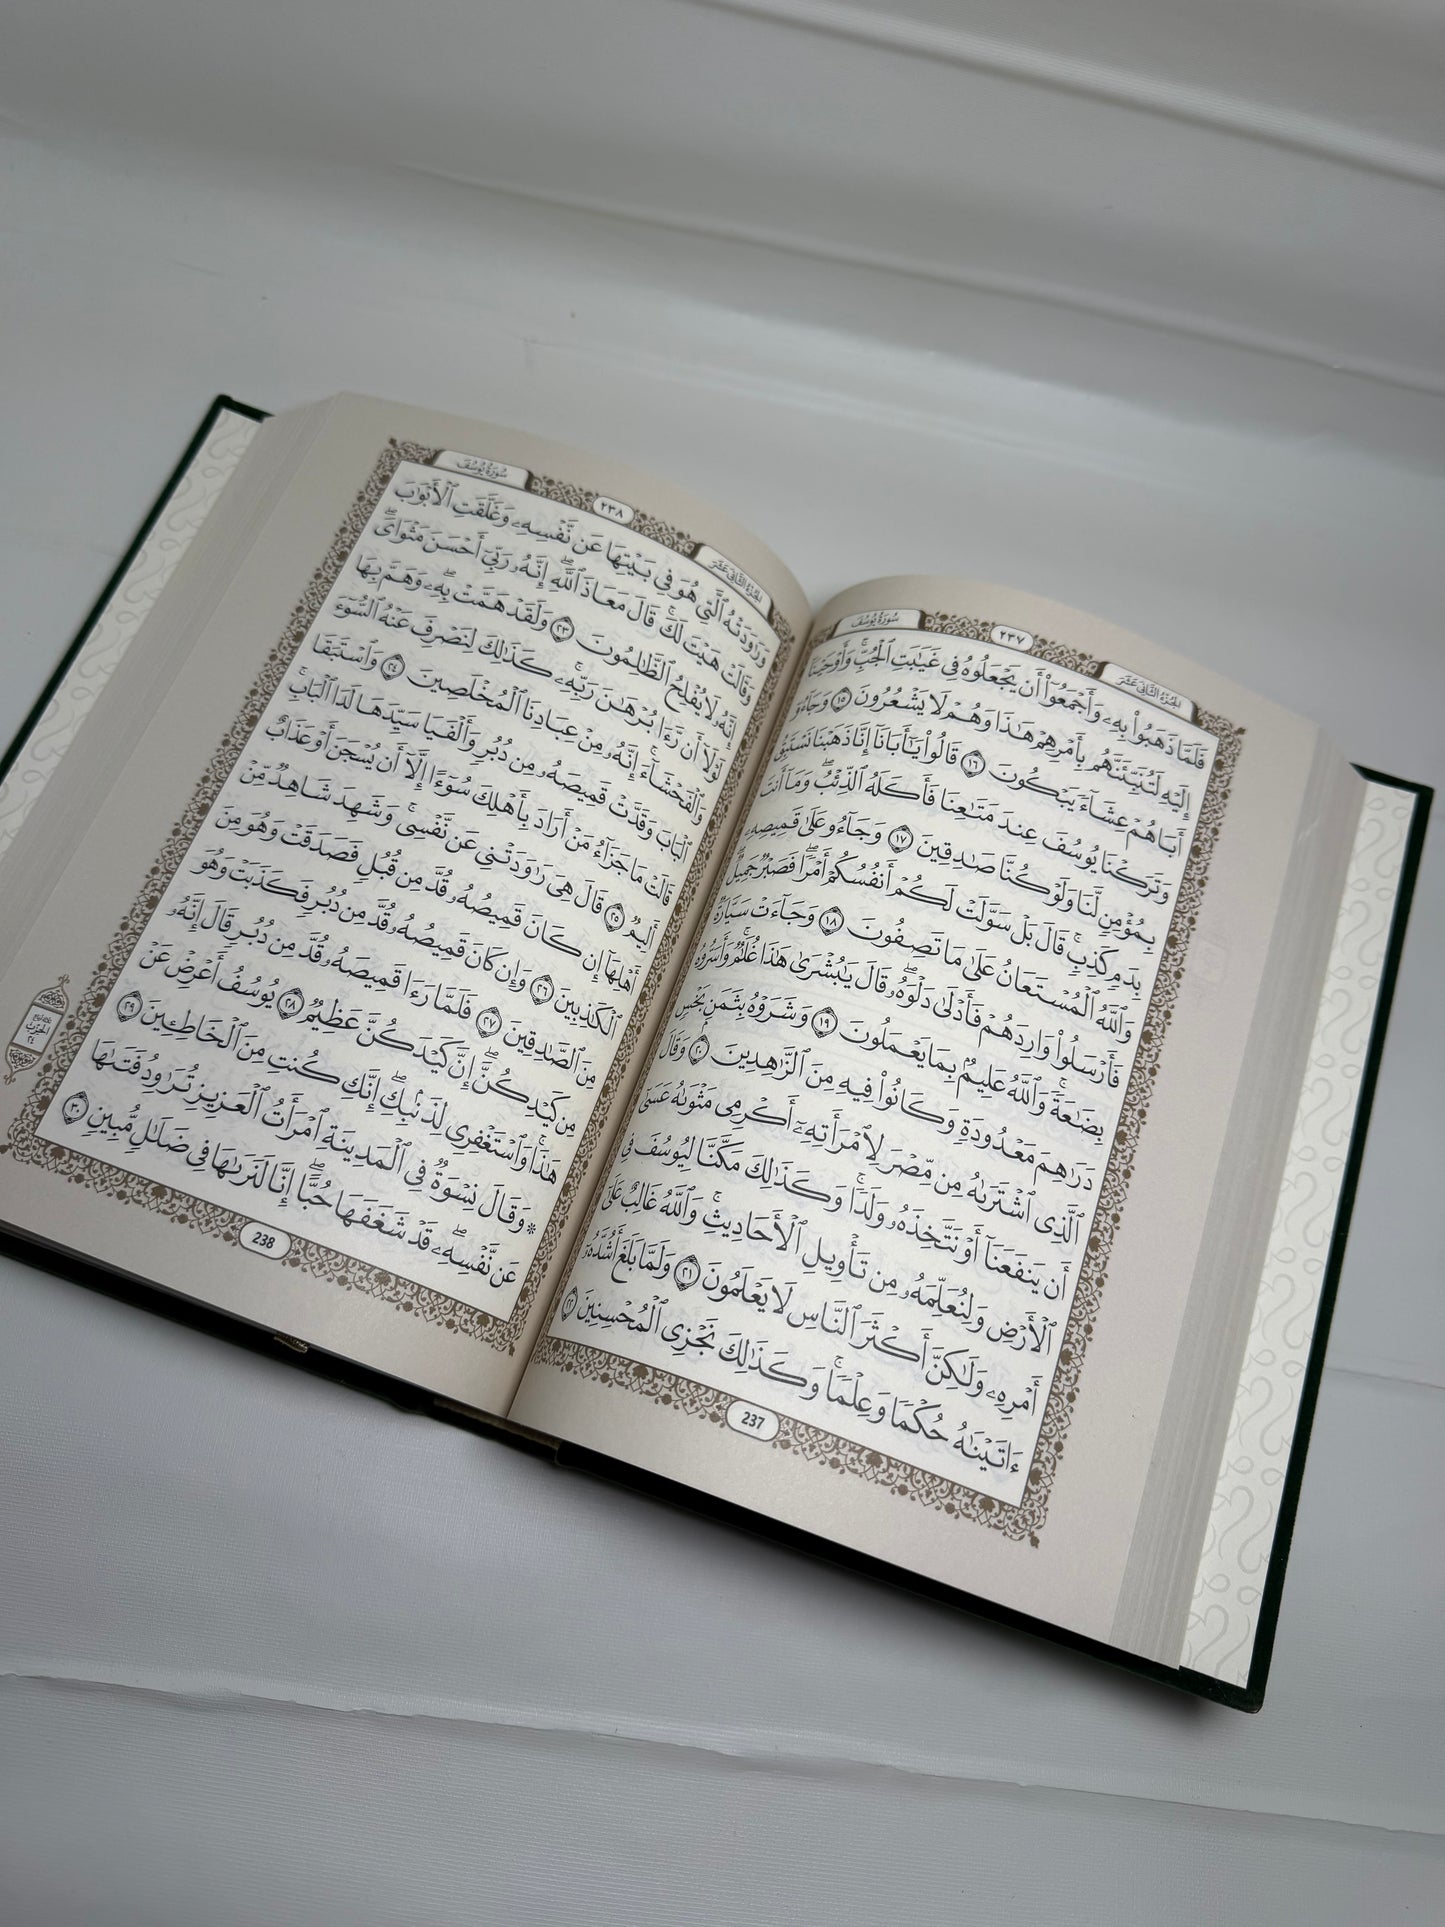 سُورَةُ يُوسُفَ
٢٣٧
الجُزْءُ الثَّانِي عَشَرَ
فَلَمَّا ذَهَبُوا۟ بِهِۦ وَأَجْمَعُوٓا۟ أَن يَجْعَلُوهُ فِى غَيَٰبَتِ ٱلْجُبِّۚ وَأَوْحَيْنَآ
إِلَيْهِ لَتُنَبِّئَنَّهُم بِأَمْرِهِمْ هَٰذَا وَهُمْ لَا يَشْعُرُونَ ١٥ وَجَآءُوٓ
أَبَاهُمْ عِشَآءً يَبْكُونَ ١٦ قَالُوا۟ يَٰٓأَبَانَآ إِنَّا ذَهَبْنَا نَسْتَبِقُ
وَتَرَكْنَا يُوسُفَ عِندَ مَتَٰعِنَا فَأَكَلَهُ ٱلذِّئْبُۖ وَمَآ أَنتَ
بِمُؤْمِنٍ لَّنَا وَلَوْ كُنَّا صَٰدِقِينَ ١٧ وَجَآءُو عَلَىٰ قَمِيصِهِۦ
بِدَمٍ كَذِبٍۚ قَالَ بَلْ سَوَّلَتْ لَكُمْ أَنفُسُكُمْ أَمْرًاۖ فَصَبْرٌ جَمِيلٌۖ
وَٱللَّهُ ٱلْمُسْتَعَانُ عَلَىٰ مَا تَصِفُونَ ١٨ وَجَآءَتْ سَيَّارَةٌ
فَأَرْسَلُوا۟ وَارِدَهُمْ فَأَدْلَىٰ دَلْوَهُۥۖ قَالَ يَٰبُشْرَىٰ هَٰذَا غُلَٰمٌۚ وَأَسَرُّوهُ
بِضَٰعَةًۚ وَٱللَّهُ عَلِيمٌۢ بِمَا يَعْمَلُونَ ١٩ وَشَرَوْهُ بِثَمَنٍۭ بَخْسٍ
دَرَٰهِمَ مَعْدُودَةٍ وَكَانُوا۟ فِيهِ مِنَ ٱلزَّٰهِدِينَ ٢٠ وَقَالَ
ٱلَّذِى ٱشْتَرَىٰهُ مِن مِّصْرَ لِٱمْرَأَتِهِۦٓ أَكْرِمِى مَثْوَىٰهُ عَسَىٰٓ
أَن يَنفَعَنَآ أَوْ نَتَّخِذَهُۥ وَلَدًاۚ وَكَذَٰلِكَ مَكَّنَّا لِيُوسُفَ فِى
ٱلْأَرْضِ وَلِنُعَلِّمَهُۥ مِن تَأْوِيلِ ٱلْأَحَادِيثِۚ وَٱللَّهُ غَالِبٌ عَلَىٰٓ
أَمْرِهِۦ وَلَٰكِنَّ أَكْثَرَ ٱلنَّاسِ لَا يَعْلَمُونَ ٢١ وَلَمَّا بَلَغَ أَشُدَّهُۥٓ
ءَاتَيْنَٰهُ حُكْمًا وَعِلْمًاۚ وَكَذَٰلِكَ نَجْزِى ٱلْمُحْسِنِينَ ٢٢
237
سُورَةُ يُوسُفَ
٢٣٨
الجُزْءُ الثَّانِي عَشَرَ
وَرَٰوَدَتْهُ ٱلَّتِى هُوَ فِى بَيْتِهَا عَن نَّفْسِهِۦ وَغَلَّقَتِ ٱلْأَبْوَٰبَ
وَقَالَتْ هَيْتَ لَكَۚ قَالَ مَعَاذَ ٱللَّهِۖ إِنَّهُۥ رَبِّىٓ أَحْسَنَ مَثْوَاىَۖ
إِنَّهُۥ لَا يُفْلِحُ ٱلظَّٰلِمُونَ ٢٣ وَلَقَدْ هَمَّتْ بِهِۦۖ وَهَمَّ بِهَا
لَوْلَآ أَن رَّءَا بُرْهَٰنَ رَبِّهِۦۚ كَذَٰلِكَ لِنَصْرِفَ عَنْهُ ٱلسُّوٓءَ
وَٱلْفَحْشَآءَۚ إِنَّهُۥ مِنْ عِبَادِنَا ٱلْمُخْلَصِينَ ٢٤ وَٱسْتَبَقَا
ٱلْبَابَ وَقَدَّتْ قَمِيصَهُۥ مِن دُبُرٍ وَأَلْفَيَا سَيِّدَهَا لَدَا ٱلْبَابِۚ
قَالَتْ مَا جَزَآءُ مَنْ أَرَادَ بِأَهْلِكَ سُوٓءًا إِلَّآ أَن يُسْجَنَ أَوْ عَذَابٌ
أَلِيمٌ ٢٥ قَالَ هِىَ رَٰوَدَتْنِى عَن نَّفْسِىۚ وَشَهِدَ شَاهِدٌ مِّنْ
أَهْلِهَآ إِن كَانَ قَمِيصُهُۥ قُدَّ مِن قُبُلٍ فَصَدَقَتْ وَهُوَ مِنَ
ٱلْكَٰذِبِينَ ٢٦ وَإِن كَانَ قَمِيصُهُۥ قُدَّ مِن دُبُرٍ فَكَذَبَتْ وَهُوَ
مِنَ ٱلصَّٰدِقِينَ ٢٧ فَلَمَّا رَءَا قَمِيصَهُۥ قُدَّ مِن دُبُرٍ قَالَ إِنَّهُۥ
مِن كَيْدِكُنَّۖ إِنَّ كَيْدَكُنَّ عَظِيمٌ ٢٨ يُوسُفُ أَعْرِضْ عَنْ
هَٰذَاۚ وَٱسْتَغْفِرِى لِذَنۢبِكِۖ إِنَّكِ كُنتِ مِنَ ٱلْخَاطِـِٔينَ ٢٩
* وَقَالَ نِسْوَةٌ فِى ٱلْمَدِينَةِ ٱمْرَأَتُ ٱلْعَزِيزِ تُرَٰوِدُ فَتَىٰهَا
عَن نَّفْسِهِۦۖ قَدْ شَغَفَهَا حُبًّاۖ إِنَّا لَنَرَىٰهَا فِى ضَلَٰلٍ مُّبِينٍ ٣٠
الحِزْب
٢٤
238